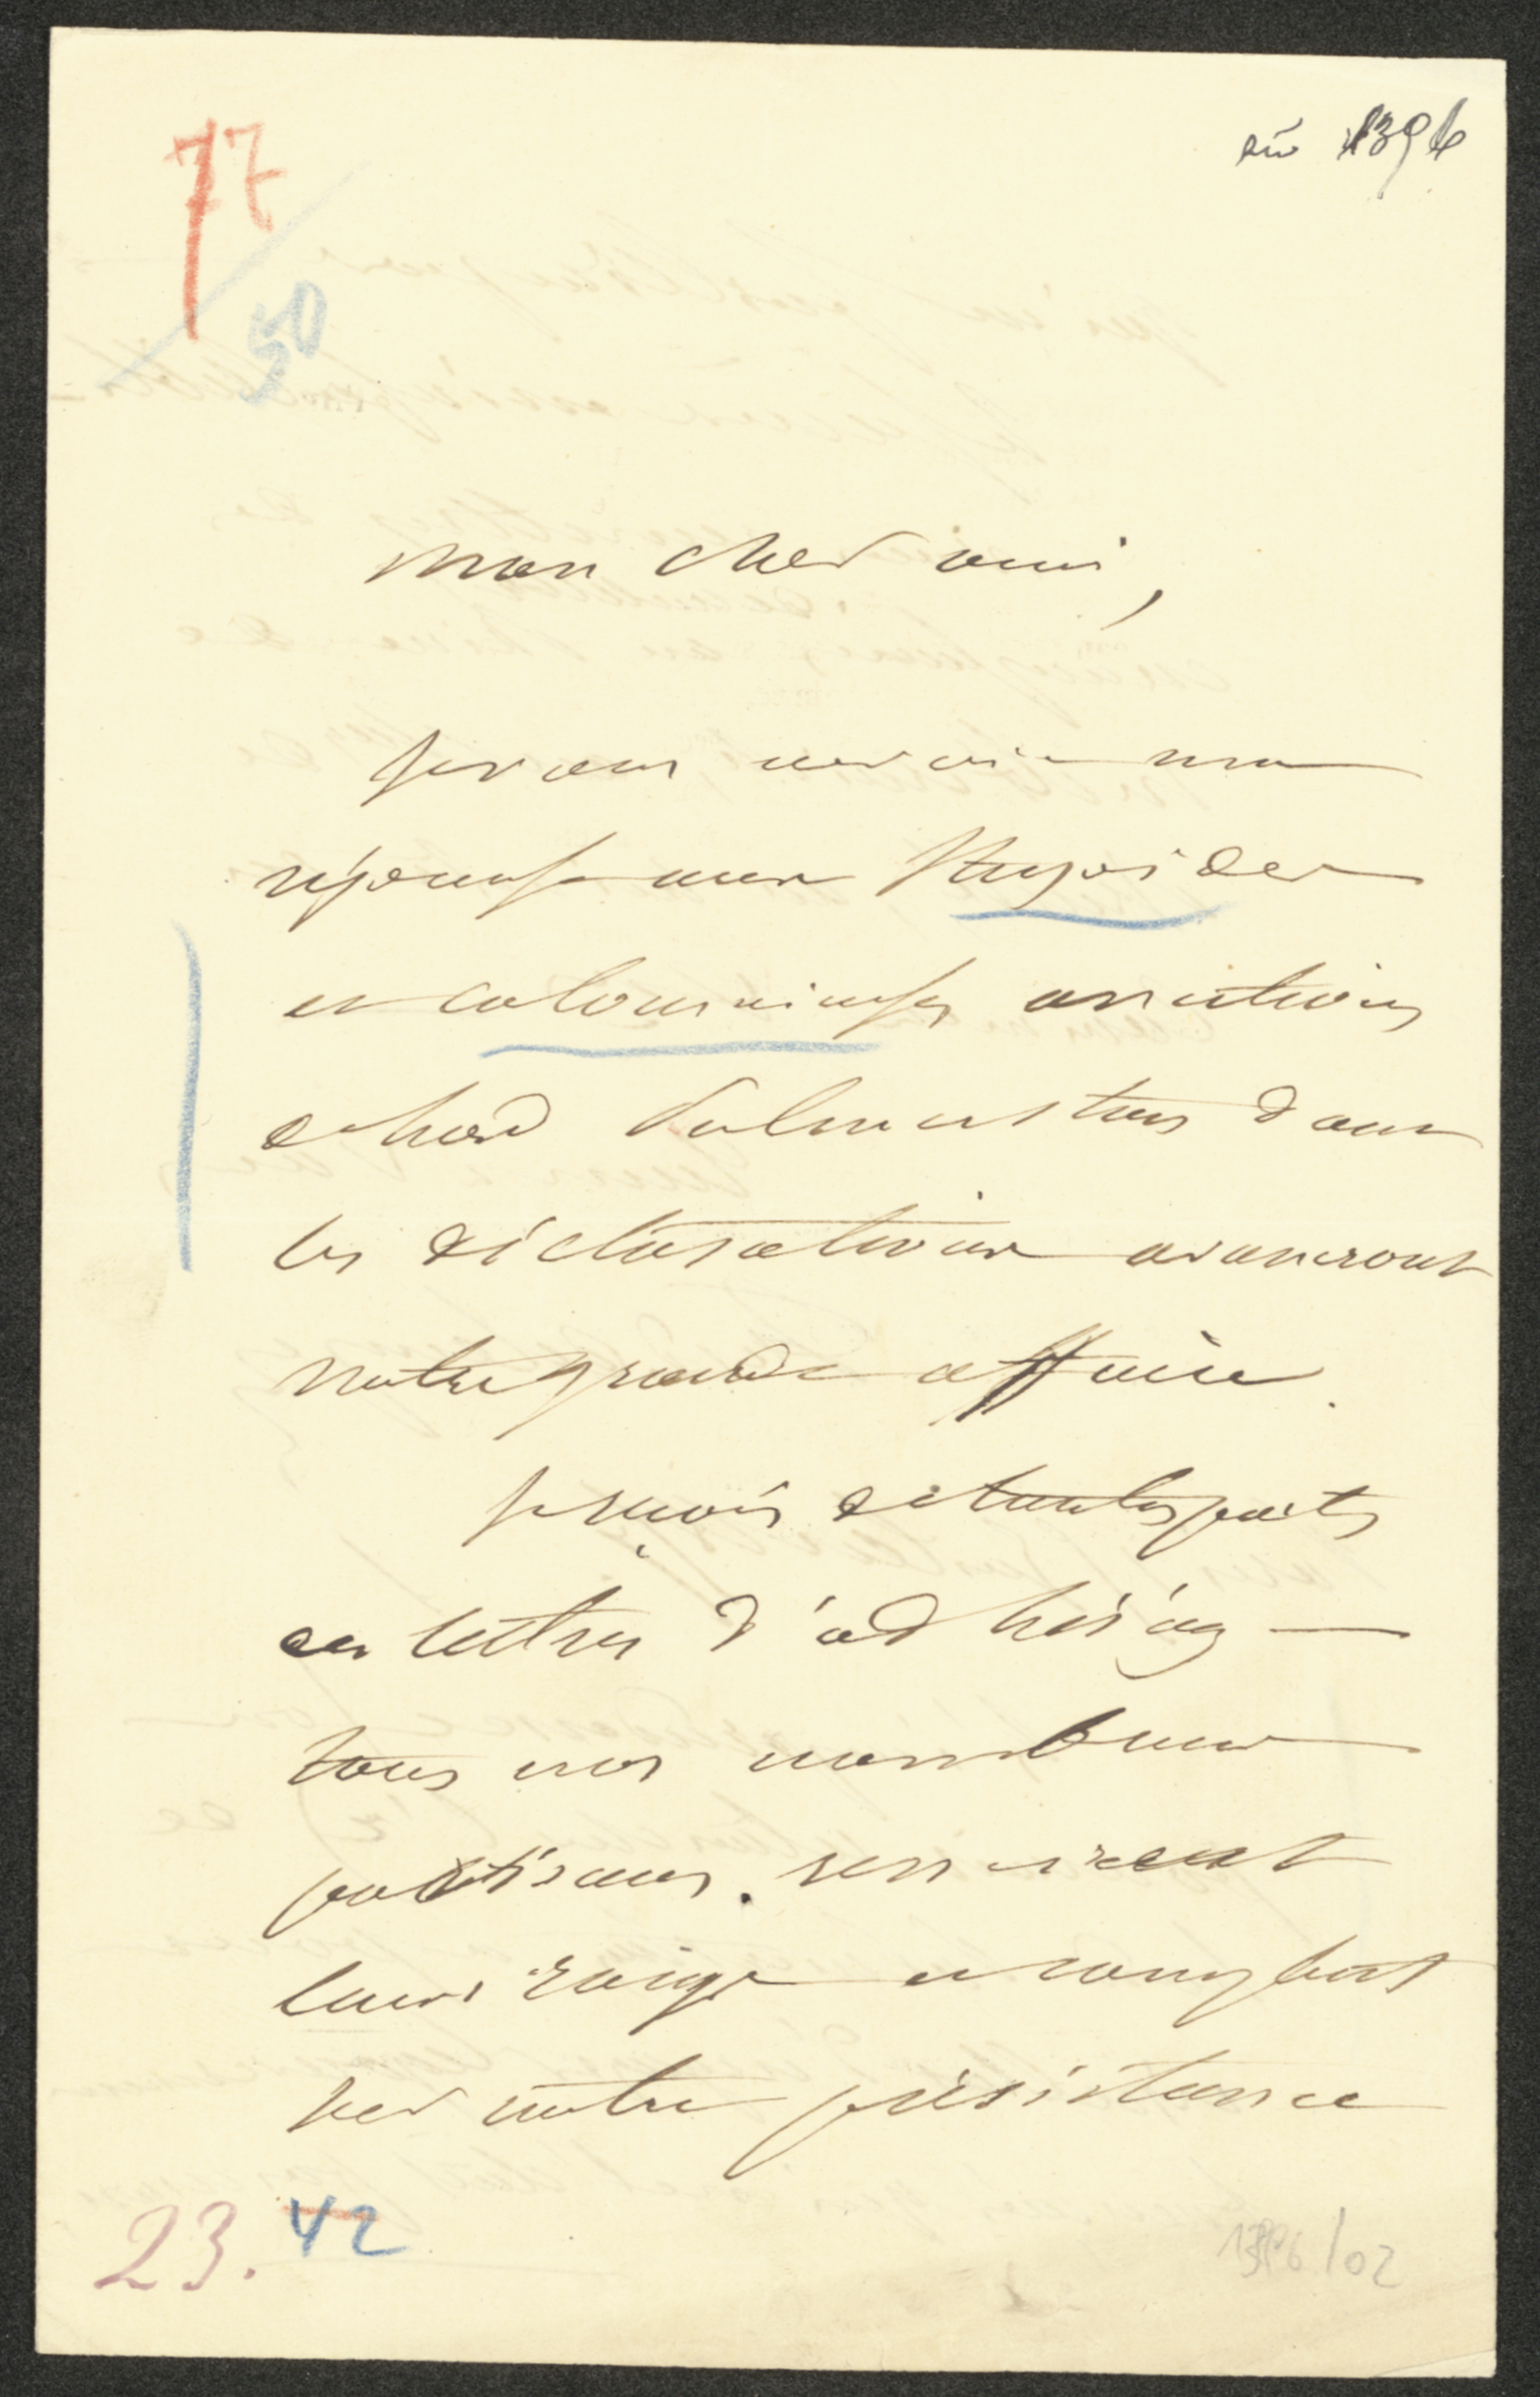 77
50
1396
mon cher ami,
je vous envoie ma
réponse aux stupides
et calomnieuses assertions
de Lord Palmerston dont
les déclarations avanceront
notre grande affaire.
je reçois de toutes parts
des lettres d'adhésions
tous nos nombreux
partisans
leurs et comptent
sur notre persistance
23. 42
1396/02